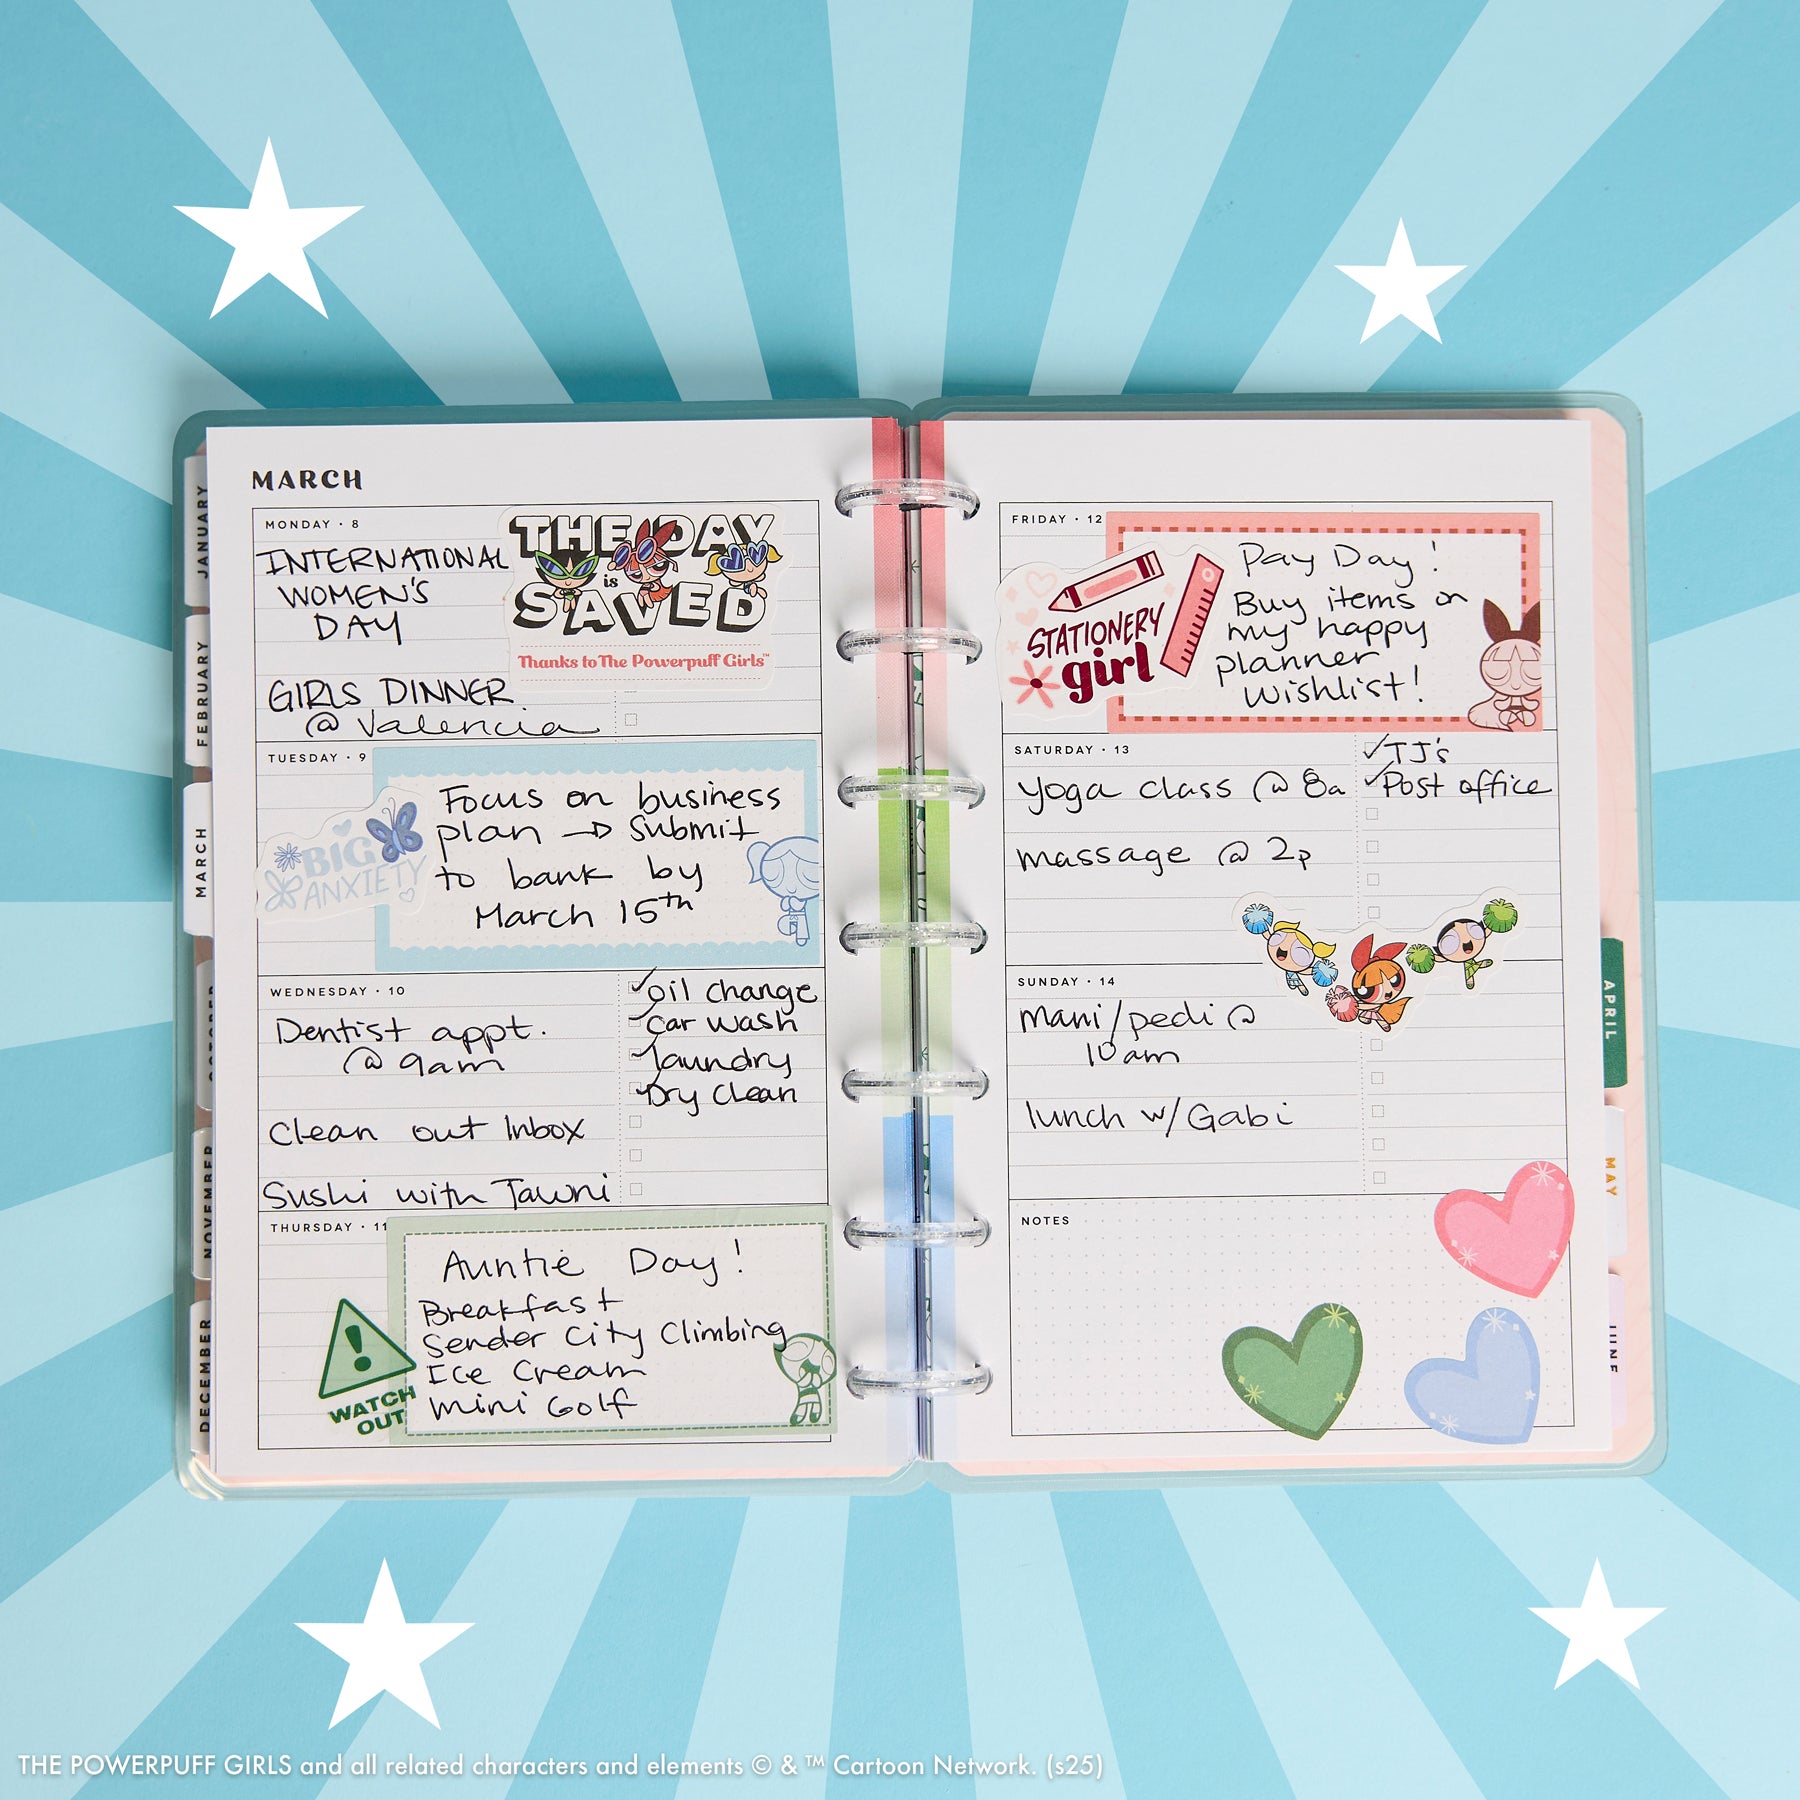 MARCH
MONDAY • 8
INTERNATIONAL
WOMEN'S
DAY
GIRLS DINNER
@ Valencia
THE DAY
is
SAVED
Thanks to The Powerpuff Girls™
TUESDAY • 9
BIG
ANXIETY
Focus on business
plan → submit
to bank by
March 15th
WEDNESDAY • 10
Dentist appt.
@ 9am
Clean out Inbox
Sushi with Tawni
oil change
car wash
laundry
Dry Clean
THURSDAY • 11
WATCH
OUT
Auntie Day!
Breakfast
Sender City Climbing
Ice Cream
mini Golf
FRIDAY • 12
STATIONERY
girl
Pay Day!
Buy items on
my happy
planner
wishlist!
SATURDAY • 13
yoga class @ 8a
massage @ 2p
TJ's
Post office
SUNDAY • 14
mani/pedi @
10am
lunch w/ Gabi
NOTES
JANUARY
FEBRUARY
MARCH
OCTOBER
NOVEMBER
DECEMBER
APRIL
MAY
JUNE
THE POWERPUFF GIRLS and all related characters and elements © & ™ Cartoon Network. (s25)